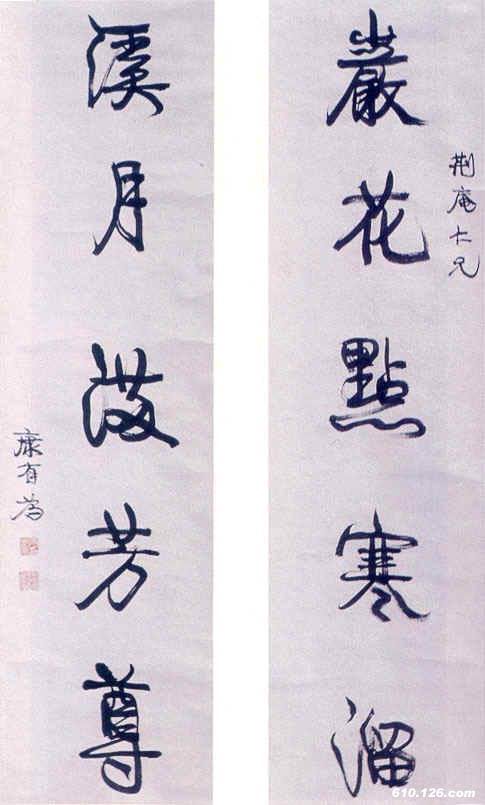 荊庵仁兄
巖花點寒溜
溪月湛芳尊
康有為
610.126.com